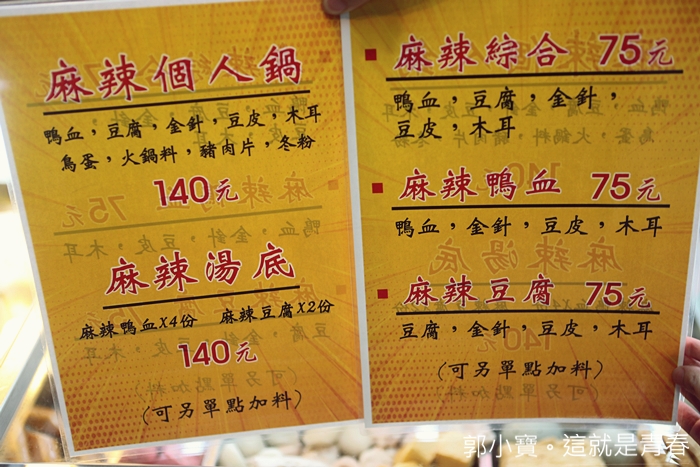 麻辣個人鍋
鴨血，豆腐，金針，豆皮，木耳
鳥蛋，火鍋料，豬肉片，冬粉
140元
麻辣湯底
麻辣鴨血X4份 麻辣豆腐X2份
140元
(可另單點加料)
麻辣綜合 75元
鴨血，豆腐，金針，
豆皮，木耳
麻辣鴨血 75元
鴨血，金針，豆皮，木耳
麻辣豆腐 75元
豆腐，金針，豆皮，木耳
(可另單點加料)
郭小寶。這就是青春